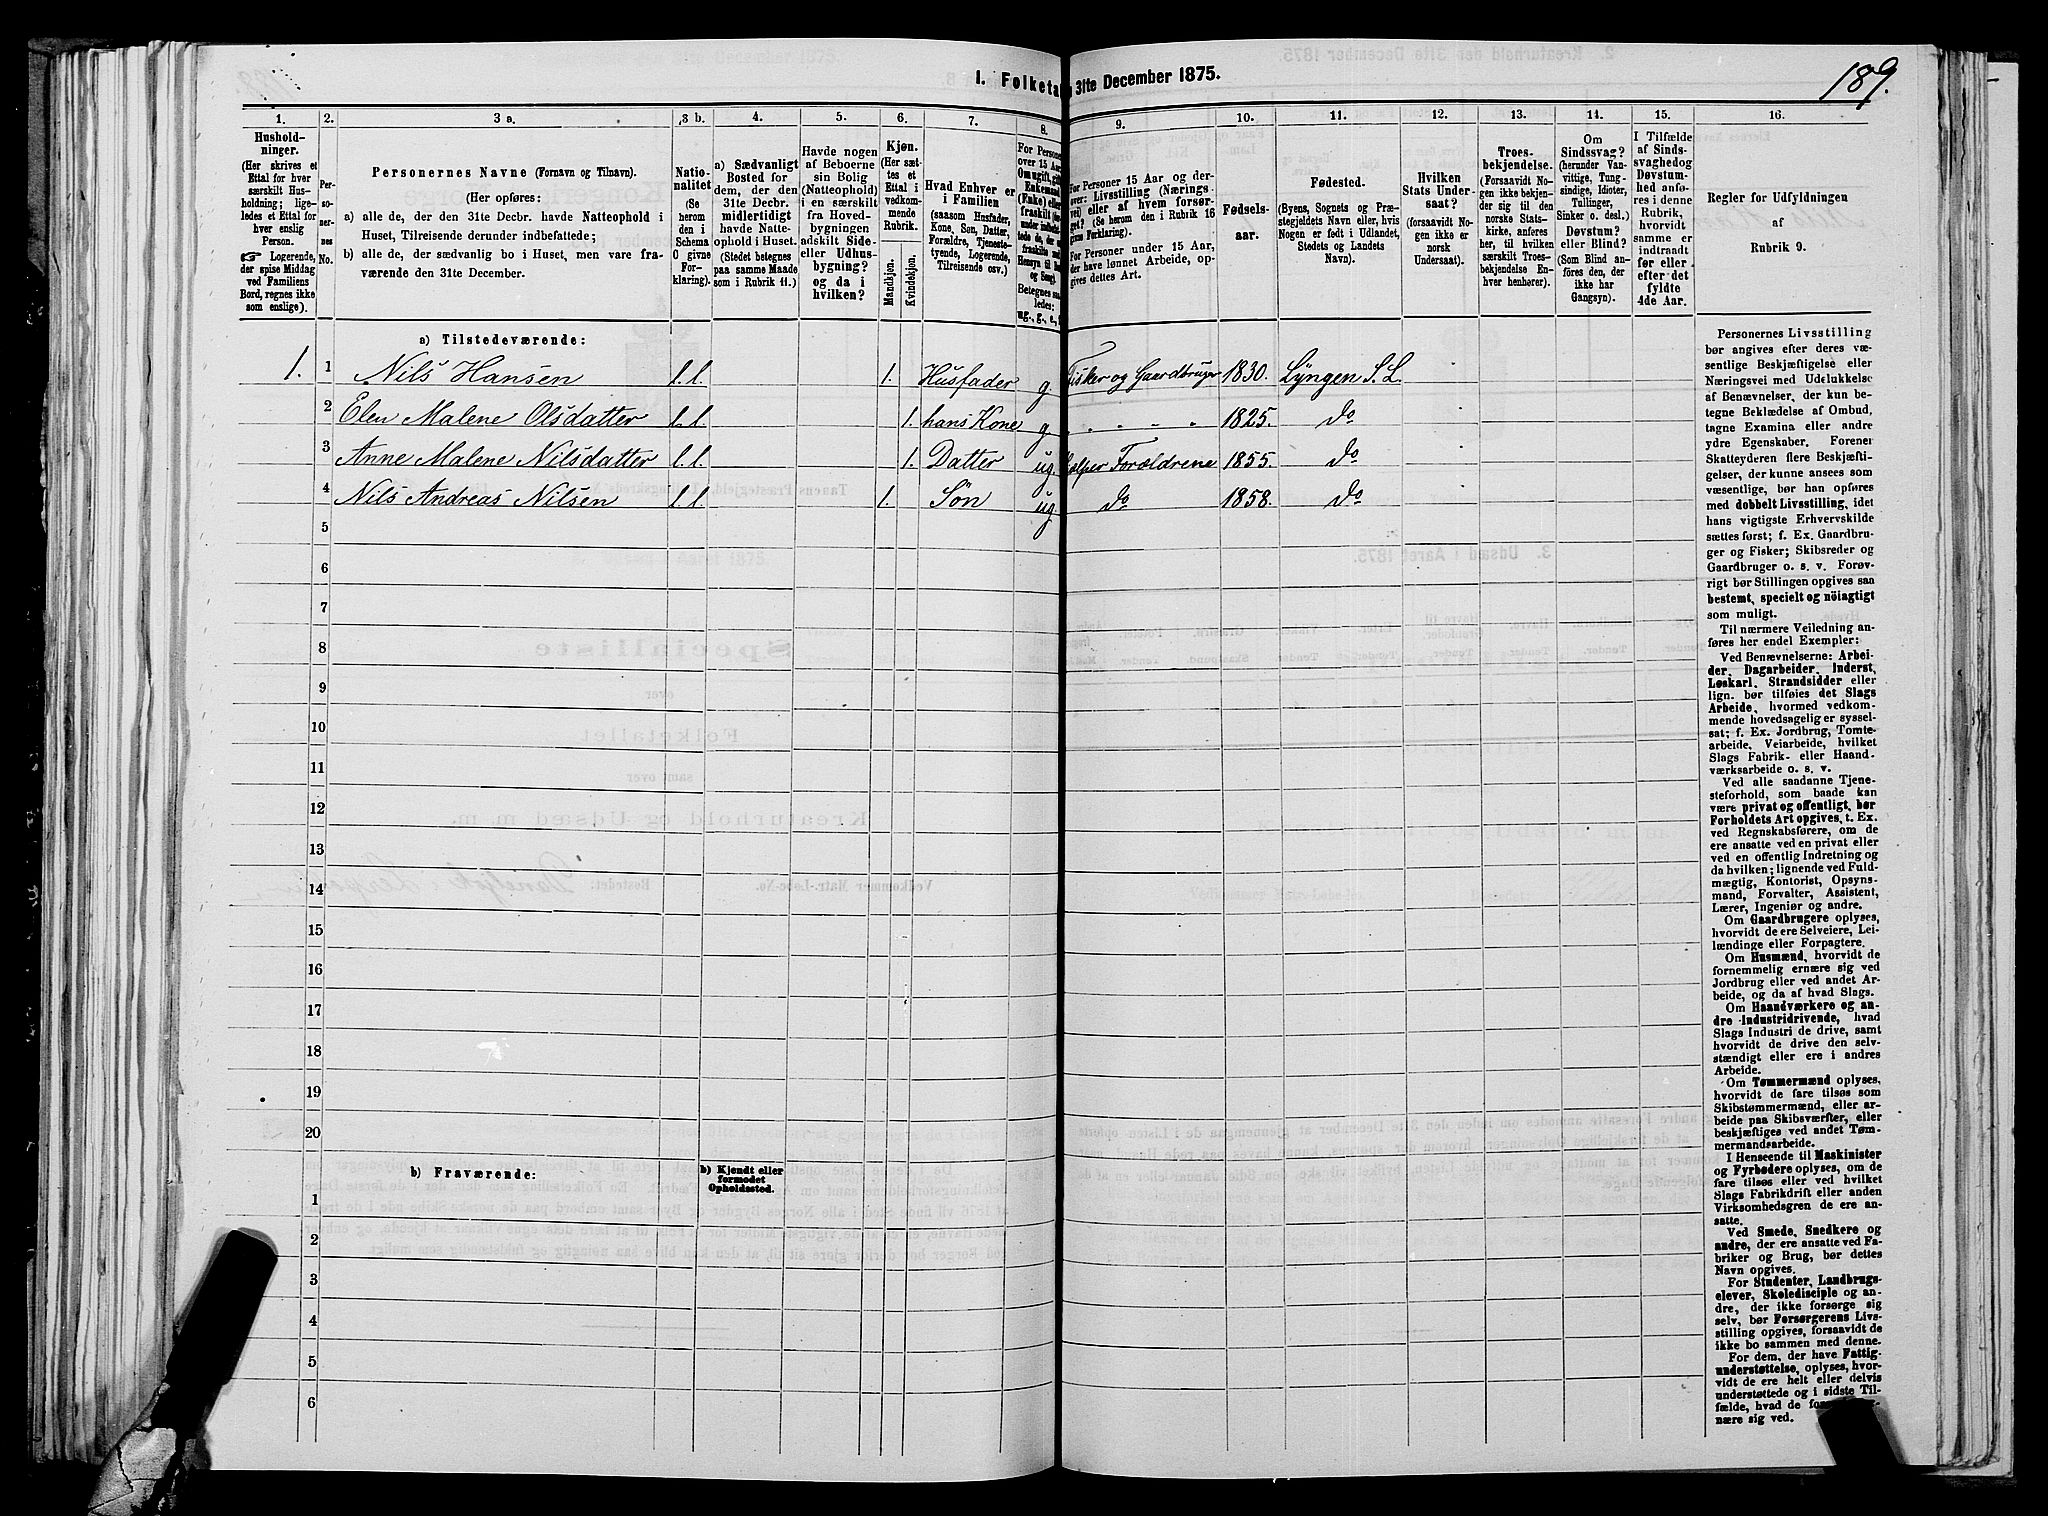 189.
I. Folketa 31te December 1875.
1. 2. 3 a. 3 b. 4. 5. 6. 7. 8. 9. 10. 11. 12. 13. 14. 15. 16.
Hushold-
ninger.
(Her skrives et
Ettal for hver
særskilt Hus-
holdning; lige-
ledes et Ettal for
hver enslig
Person.
☞ Logerende,
der spise Middag
ved Familiens
Bord, regnes ikke
som enslige).
Per-
so-
ner-
nes
No.
Personernes Navne (Fornavn og Tilnavn).
(Her opføres:
a) alle de, der den 31te Decbr. havde Natteophold i
Huset, Tilreisende derunder indbefattede;
b) alle de, der sædvanlig bo i Huset, men vare fra-
værende den 31te December.
Natio-
nalitet
(Se
herom
den i
Schema
O givne
For-
klaring).
a) Sædvanligt
Bosted for
dem, der den
31te Decbr.
midlertidigt
havde Natte-
ophold i Huset.
(Stedet betegnes
paa samme Maade
som i Rubrik 11.)
Havde nogen
af Beboerne
sin Bolig
(Natteophold)
i en særskilt
fra Hoved-
bygningen
adskilt Side-
eller Udhus-
bygning?
og da i
hvilken?
Kjøn.
(Her sæt-
tes et
Ettal i
vedkom-
mende
Rubrik.
Mandkjøn.
Kvindekjøn.
Hvad Enhver er
i Familien
(saasom Husfader,
Kone, Søn, Datter,
Forældre, Tjeneste-
tyende, Logerende,
Tilreisende osv.)
For Persone
over 15 Aar
Om ugift, gift
Enkemand
(Enke) eller
fraskilt
Betegnes saa-
ledes:
ug., g., e., f.
For Personer 15 Aar og der-
over: Livsstilling (Nærings-
vei) eller af hvem forsør-
get? (Se herom den i Rubrik 16
givne Forklaring).
For Personer under 15 Aar,
der have lønnet Arbeide, op-
gives dettes Art.
Fødsels-
aar.
Fødested.
(Byens, Sognets og Præ-
stegjeldets Navn eller, hvis
Nogen er født i Udlandet,
Stedets og Landets
Navn).
Hvilken
Stats Under-
saat?
(forsaavidt No-
gen ikke er
norsk
Undersaat).
Troes-
bekjendelse.
(Forsaavidt No-
gen ikke bekjen-
der sig til den
norske Stats-
kirke, anføres
her, til hvilken
særskilt Troes-
bekjendelse En-
hver henhører).
Om
Sindssvag?
(herunder Van-
vittige, Tung-
sindige, Idioter,
Tullinger,
Sinker o. desl.)
Døvstum?
eller Blind?
(Som Blind an-
føres den, der
ikke har
Gangsyn).
I Tilfælde
af Sinds-
svaghed og
Døvstum-
hed anfø-
res i denne
Rubrik,
hvorvidt
samme er
indtraadt
før eller
efter det
fyldte
4de Aar.
Regler for Udfyldningen
af
Rubrik 9.
a) Tilstedeværende:
1. 1 Nils Hansen l.l. 1. Husfader g. Fisker og Gaardbruger 1830. Lyngen S.L.
2 Elen Malene Olsdatter l.l. 1. hans Kone g. " " " " 1825. do
3 Anne Malene Nilsdatter l.l. 1. Datter ug. hjælper Forældrene 1855. do
4 Nils Andreas Nilsen l.l. 1. Søn ug. do 1858. do
5
6
7
8
9
10
11
12
13
14
15
16
17
18
19
20
b) Fraværende: b) Kjendt eller
formodet
Opholdssted.
1
2
3
4
5
6
Personernes Livsstilling
bør angives efter deres væ-
sentlige Beskjæftigelse eller
Næringsvei med Udelukkelse
af Benævnelser, der kun be-
tegne Beklædelse af Ombud,
tagne Examina eller andre
ydre Egenskaber. Forener
Skatteyderen flere Beskjæfti-
gelser, der kunne ansees som
væsentlige, bør han opføres
med dobbelt Livsstilling, idet
hans vigtigste Erhvervskilde
sættes først; f. Ex. Gaardbru-
ger og Fisker; Skibsreder og
Gaardbruger o. s. v. Forøv-
rigt bør Stillingen opgives saa
bestemt, specielt og nöiagtigt
som muligt.
Til nærmere Veiledning an-
føres her endel Exempler:
Ved Benævnelserne: Arbei-
der, Dagarbeider, Inderst,
Løskarl, Strandsidder eller
lign. bør tilføies det Slags
Arbeide, hvormed vedkom-
mende hovedsagelig er syssel-
sat; f. Ex. Jordbrug, Tomte-
arbeide, Veiarbeide, hvilket
Slags Fabrik- eller Haand-
værksarbeide o. s. v.
Ved alle saadanne Tjene-
steforhold, som baade kan
være privat og offentligt, bør
Forholdets Art opgives, t. Ex.
ved Regnskabsførere, om de
ere ansatte ved en privat eller
ved en offentlig Indretning og
da hvilken; lignende ved Fuld-
mægtig, Kontorist, Opsyns-
mand, Forvalter, Assistent,
Lærer, Ingeniør og andre.
Om Gaardbrugere oplyses,
hvorvidt de ere Selveiere, Lei-
lændinge eller Forpagtere.
Om Husmænd, hvorvidt de
fornemmelig ernære sig ved
Jordbrug eller ved andet Ar-
beide, og da af hvad Slags.
Om Haandværkere og an-
dre Industridrivende, hvad
Slags Industri de drive, samt
hvorvidt de drive den selv-
stændigt eller ere i andres
Arbeide.
Om Tømmermænd oplyses,
hvorvidt de fare tilsøs som
Skibstømmermænd, eller ar-
beide paa Skibsværfter, eller
beskjæftiges ved andet Tøm-
mermandsarbeide.
I Henseende til Maskinister
og Fyrbødere oplyses, om de
fare tilsøs eller ved hvilket
Slags Fabrikdrift eller anden
Virksomhedsgren de ere an-
satte.
Ved Smede, Snedkere og
andre, der ere ansatte ved Fa-
briker og Brug, bør dettes
Navn opgives.
For Studenter, Landbrugs-
elever, Skoledisciple og an-
dre, der ikke forsørge sig
selv, bør Forsørgerens Livs-
stilling opgives, forsaavidt de
ikke bo sammen med denne.
For dem, der have Fattig-
understøttelse, oplyses, hvor-
vidt de ere helt eller delvis
understøttede og i sidste Til-
fælde, hvad de
nære sig ved.